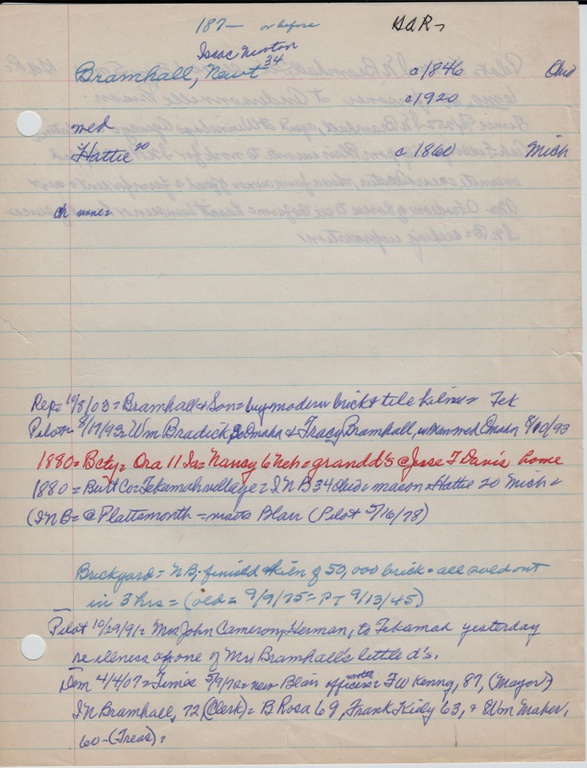 187— or before GAR-
Isaac Newton
Bramhall, Newt 34 c1846 Ohio
c1920
med
Hattie 20 c1860 Mich
ch none=
Rep= 10/8/03= Bramhall & Son= buy modern brick & tile kilns= Tek
Pilot= 8/17/93= Wm Bradick, Omaha & Tracy Bramhall, med Omaha 8/10/93
1880= Bcty= Ora 11 Ia= Nancy 6 Neb= grandd's @ Jesse T Davis home
1880= Burt Co= Tekamah village= I N B 34 Ohio= mason & Hattie 20 Mich=
(I N B= @ Plattsmouth = visits Blair (Pilot 5/16/78)
Brickyard= N B. finished kiln of 50,000 brick= all sold out
in 3 hrs= (old= 9/9/75= PT 9/13/45)
Pilot 10/29/91= Mrs John Cameron, Herman, to Tekamah yesterday
re illness of one of Mr Bramhall's little d's.
Dem 4/4/07= Times 5/9/72= new Blair officers= F W Kenny, 87, (Mayor)
I N Bramhall, 72 (Clerk)= B Rosa 69, Frank Kiely 63, & Wm Maher,
60- (Treas)=